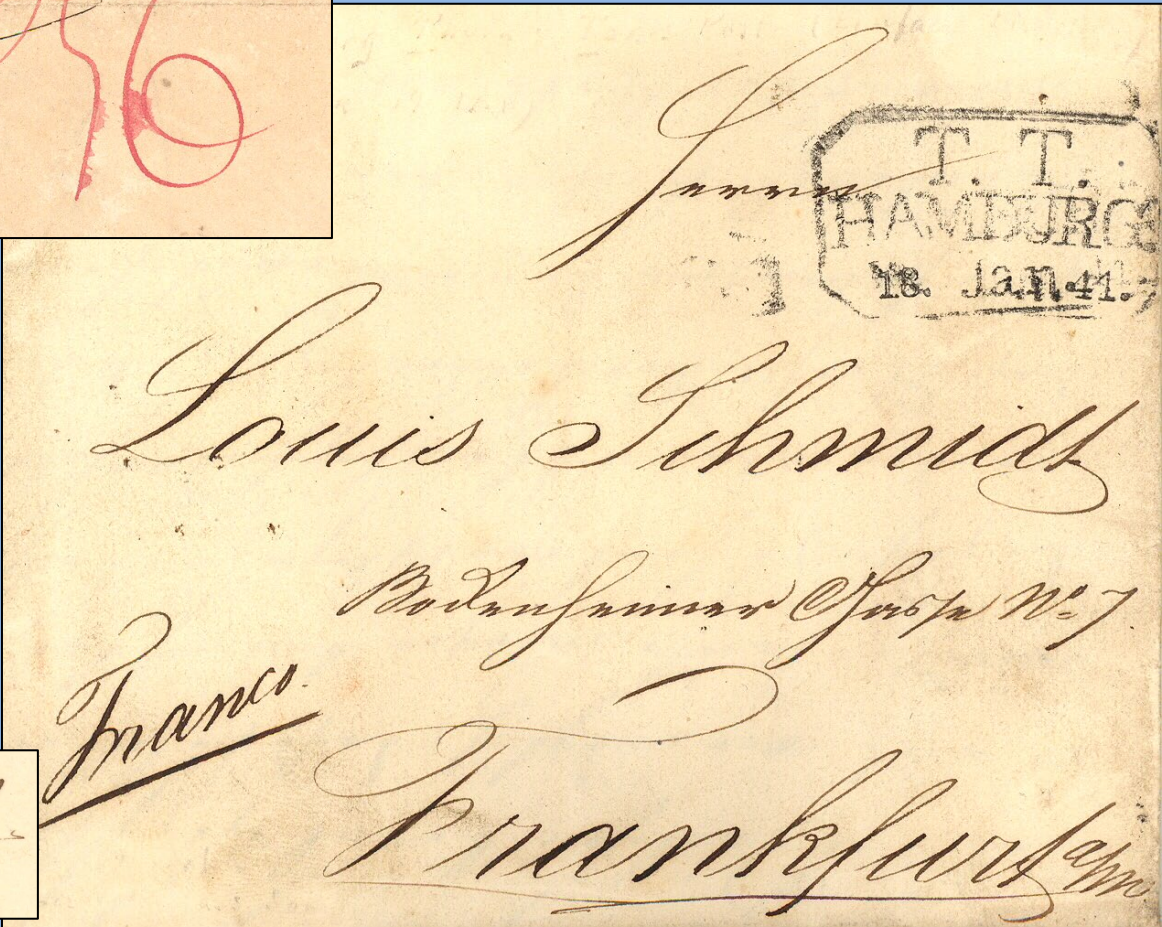 6
Herrn
T. T.
HAMBURG
18. Jan. 41.
Louis Schmidt
Bockenheimer Gasse No 7.
Franco.
Frankfurt a/m